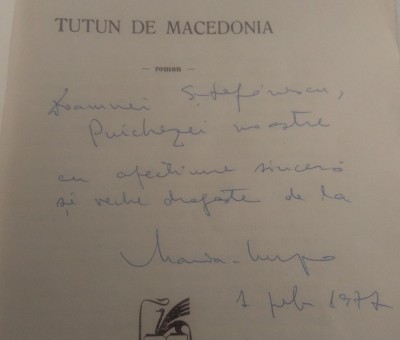 TUTUN DE MACEDONIA
— roman —
Doamnei Ștefănescu,
Puichezei noastre
cu afecțiune sinceră
și veche dragoste de la
1 feb. 1977